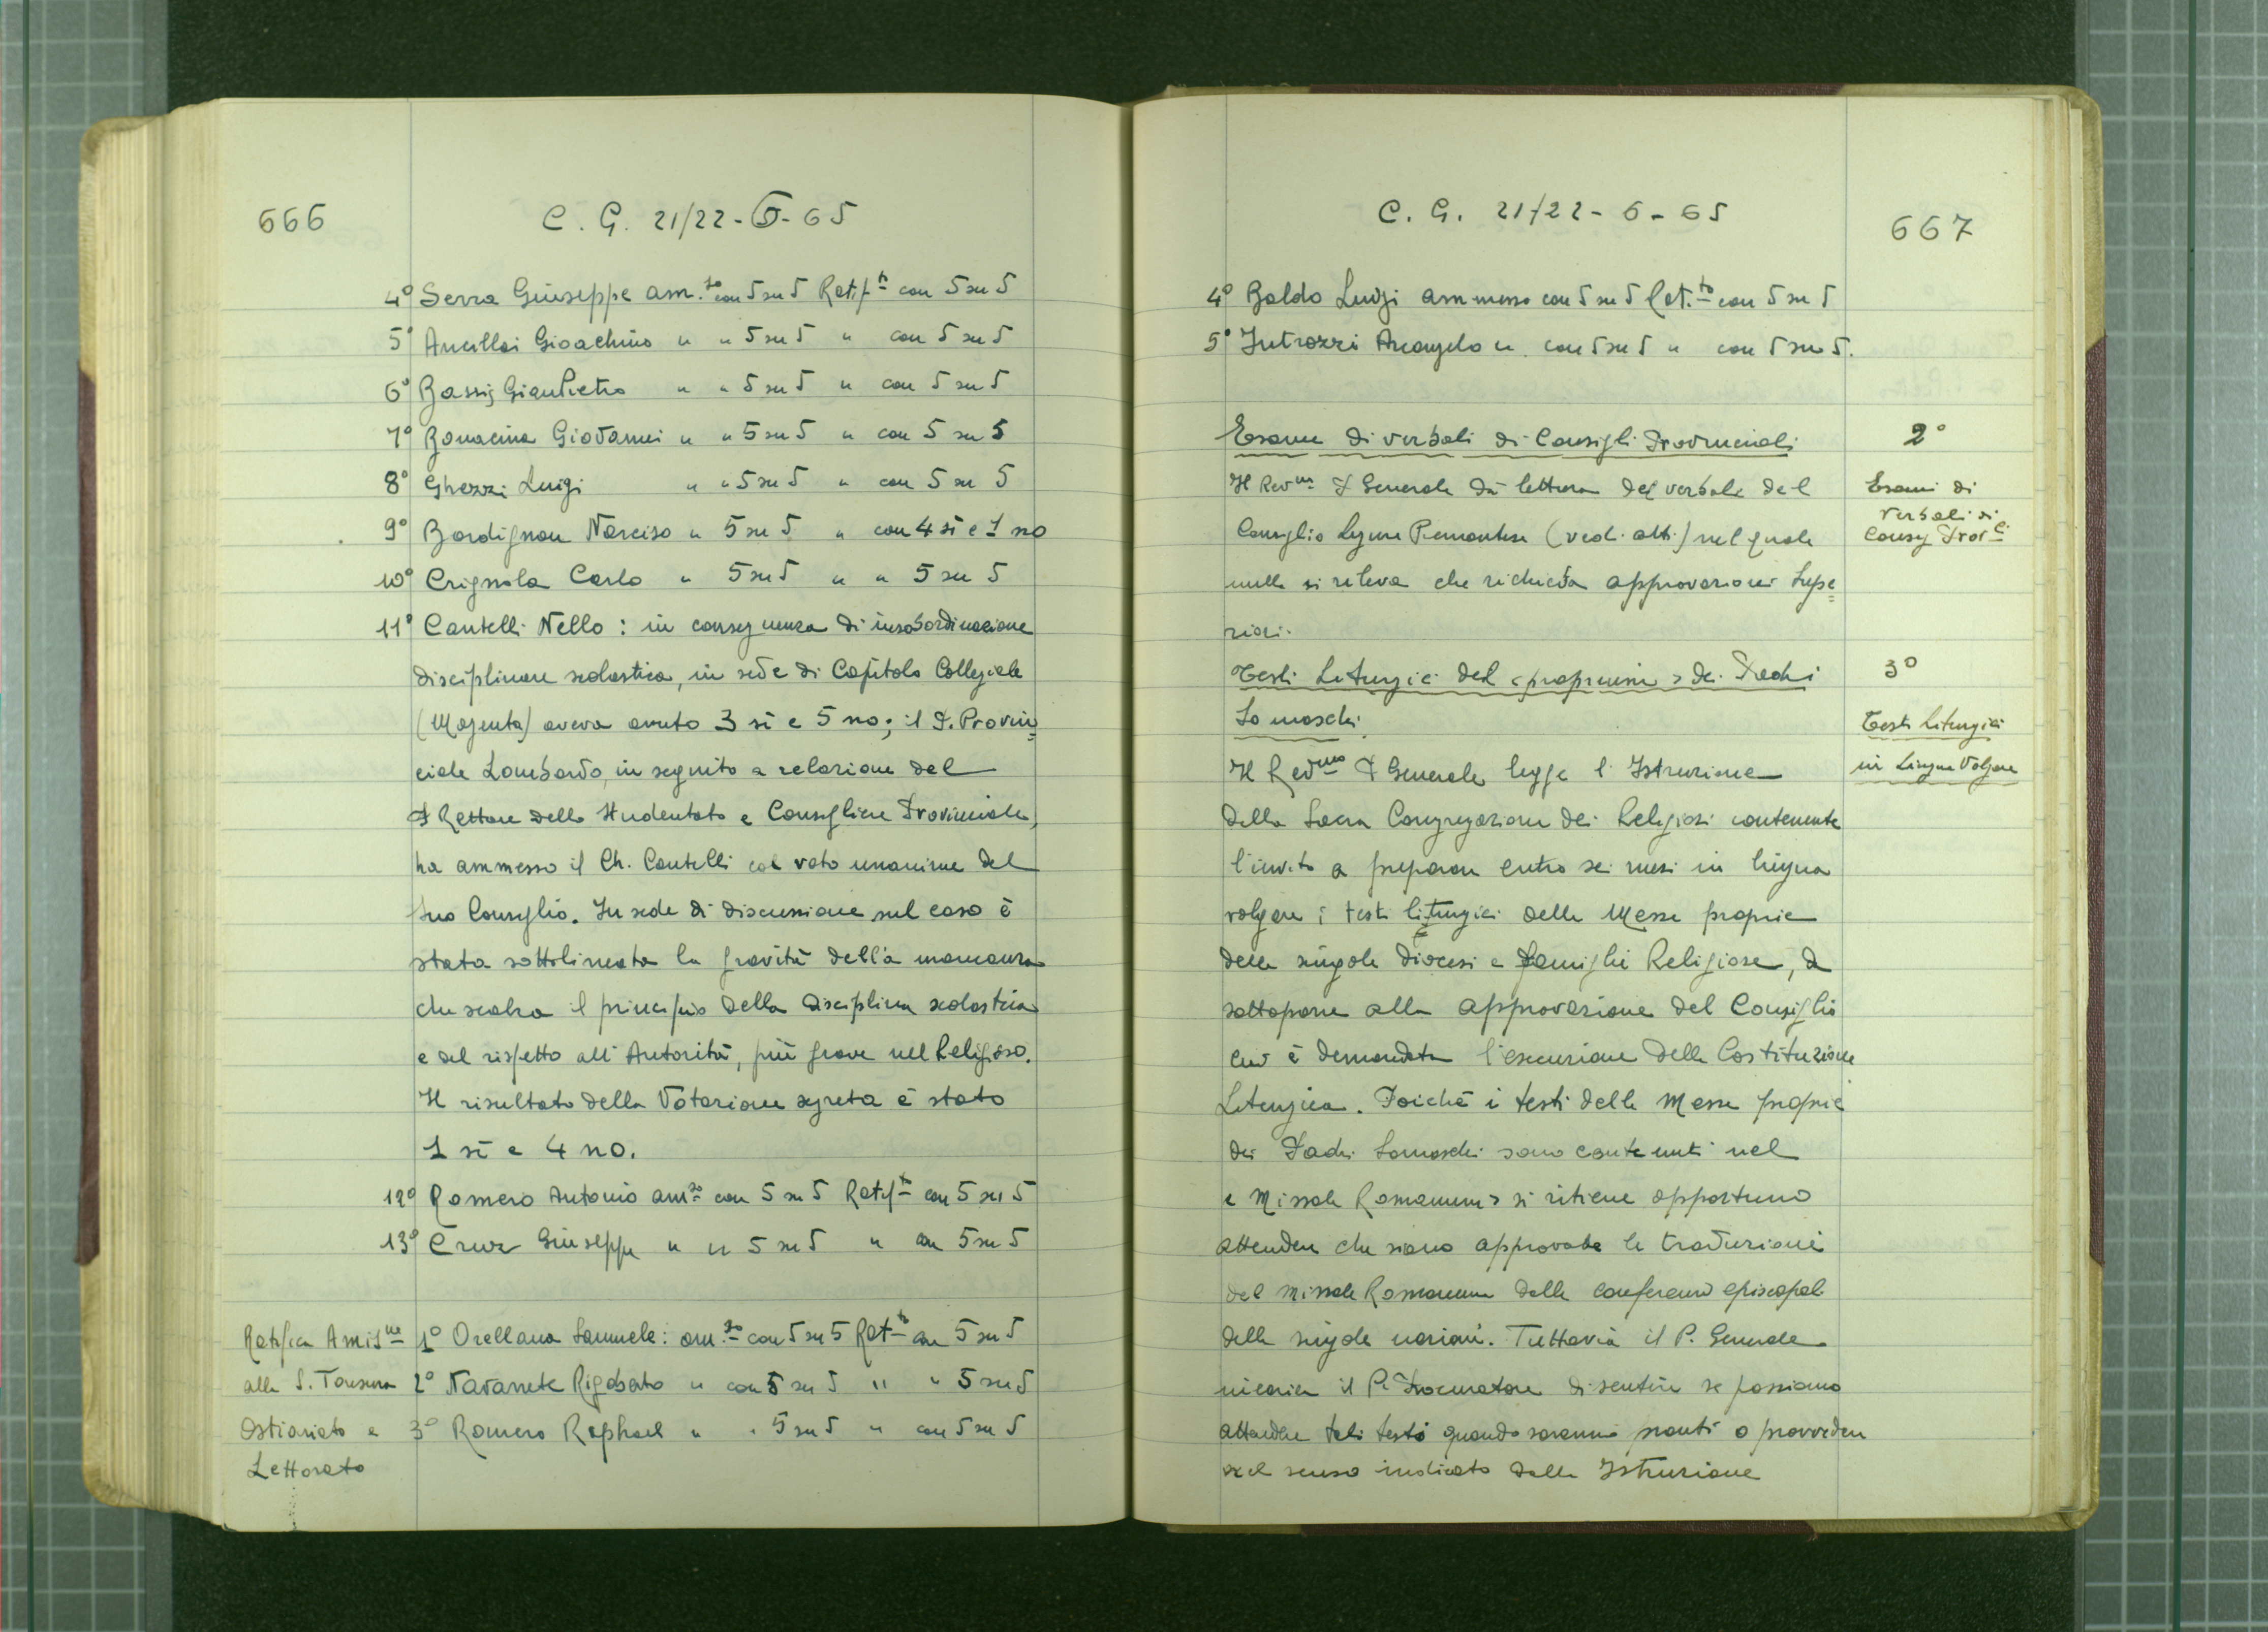 666
C. G. 21/22-6-65
4° Serra Giuseppe am.so con 5 su 5 Ratif.to con 5 su 5
5° Ancillai Gioachino " " 5 su 5 " con 5 su 5
6° Bassis GianPietro " " 5 su 5 " con 5 su 5
7° Bonacina Giovanni " " 5 su 5 " con 5 su 5
8° Ghezzi Luigi " " 5 su 5 " con 5 su 5
9° Bordignon Narciso " 5 su 5 " con 4 sì e 1 no
10° Crignola Carlo " 5 su 5 " " 5 su 5
11° Cantelli Nello : in conseguenza di insobordinazione
disciplinare scolastica, in sede di Capitolo Collegiale
(Magenta) aveva avuto 3 sì e 5 no; il P. Provin=
ciale Lombardo, in seguito a relazione del
P Rettore dello Studentato e Consigliere Provinciale,
ha ammesso il Ch. Cantelli col voto unanime del
suo Consiglio. In sede di discussione sul caso è
stata sottolineata la gravità della mancanza
che scalza il principio della disciplina scolastica
e del rispetto all'Autorità, più grave nel Religioso.
Il risultato della Votazione segreta è stato
1 sì e 4 no.
12° Romero Antonio am.so con 5 su 5 Ratif.to con 5 su 5
13° Cruz Giuseppe " " 5 su 5 " con 5 su 5
Ratifica Amis.ne
alla S. Tonsura
Ostiariato e
Lettorato
1° Orellana Samuele: am.so con 5 su 5 Rat.to con 5 su 5
2° Navarrete Rigoberto " con 5 su 5 " " 5 su 5
3° Romero Raphael " " 5 su 5 " con 5 su 5
C. G. 21/22-6-65
667
4° Baldo Luigi ammesso con 5 su 5 Rat.to con 5 su 5
5° Introzzi Arcangelo " con 5 su 5 " con 5 su 5.
Esame di verbali di Consigli Provinciali
2°
Esami di
Verbali di
Consig Prov.li
Il Rev.mo P Generale dà lettura del verbale del
Consiglio Ligure Piemontese (vedi atti) nel quale
nulla si rileva che richieda approvazioni supe=
riori.
Testi Liturgici del <proprium> dei Padri
Somaschi.
3°
Testi liturgici
in Lingua Volgare
Il Rev.mo P Generale legge l'Istruzione
della Sacra Congregazione dei Religiosi contenente
l'invito a preparare entro sei mesi in lingua
volgare i testi liturgici delle Messe proprie
delle singole diocesi e famiglie Religiose, da
sottoporre alla approvazione del Consiglio
cui è demandata l'esecuzione della Costituzione
Liturgica. Poichè i testi delle Messe proprie
dei Padri Somaschi sono contenuti nel
< Missale Romanum> si ritiene opportuno
attendere che siano approvate le traduzioni
del Missale Romanum dalle conferenze episcopali
delle singole nazioni. Tuttavia il P. Generale
incarica il P. Procuratore di sentire se possiamo
attendere tali testi quando saranno pronti o provvedere
nel senso indicato dalla Istruzione